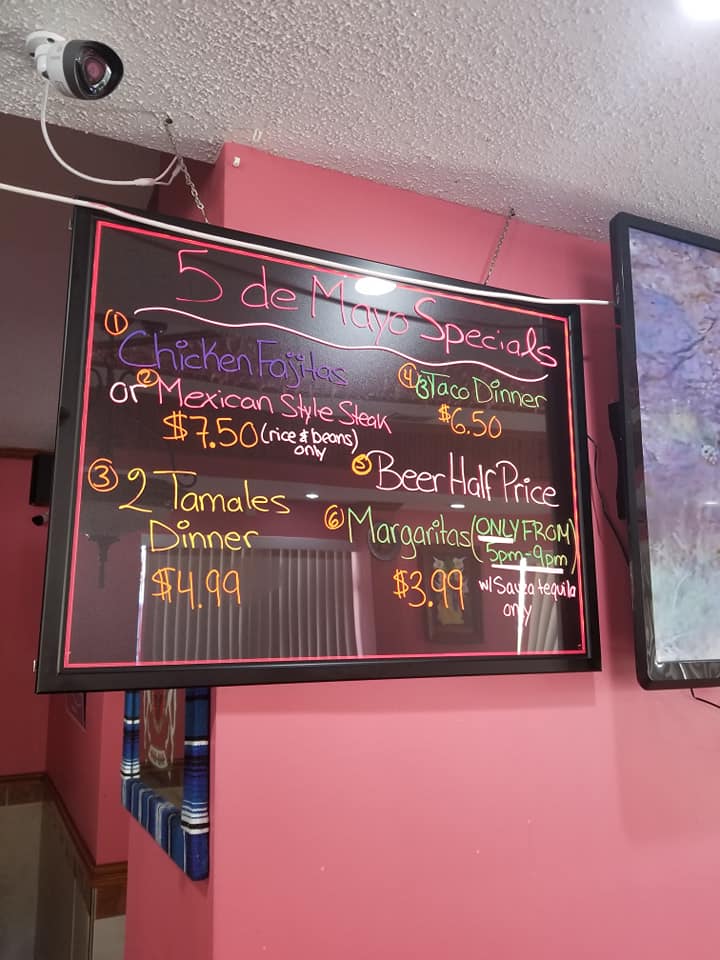 5 de Mayo Specials
① Chicken Fajitas
or ② Mexican Style Steak
$7.50 (rice & beans)
only
③ 2 Tamales
Dinner
$4.99
④ 3 Taco Dinner
$6.50
⑤ Beer Half Price
⑥ Margaritas (ONLY FROM
5pm-9pm)
$3.99 w/ Sauza tequila
only